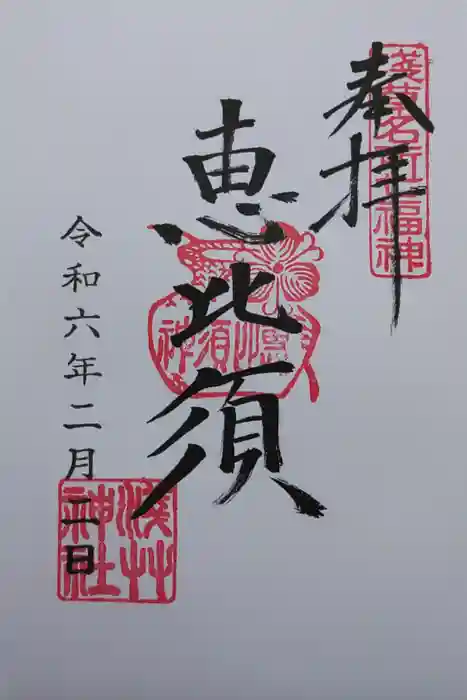 奉拝
浅草名所七福神
恵比須
恵比須神
令和六年二月二日
浅草神社